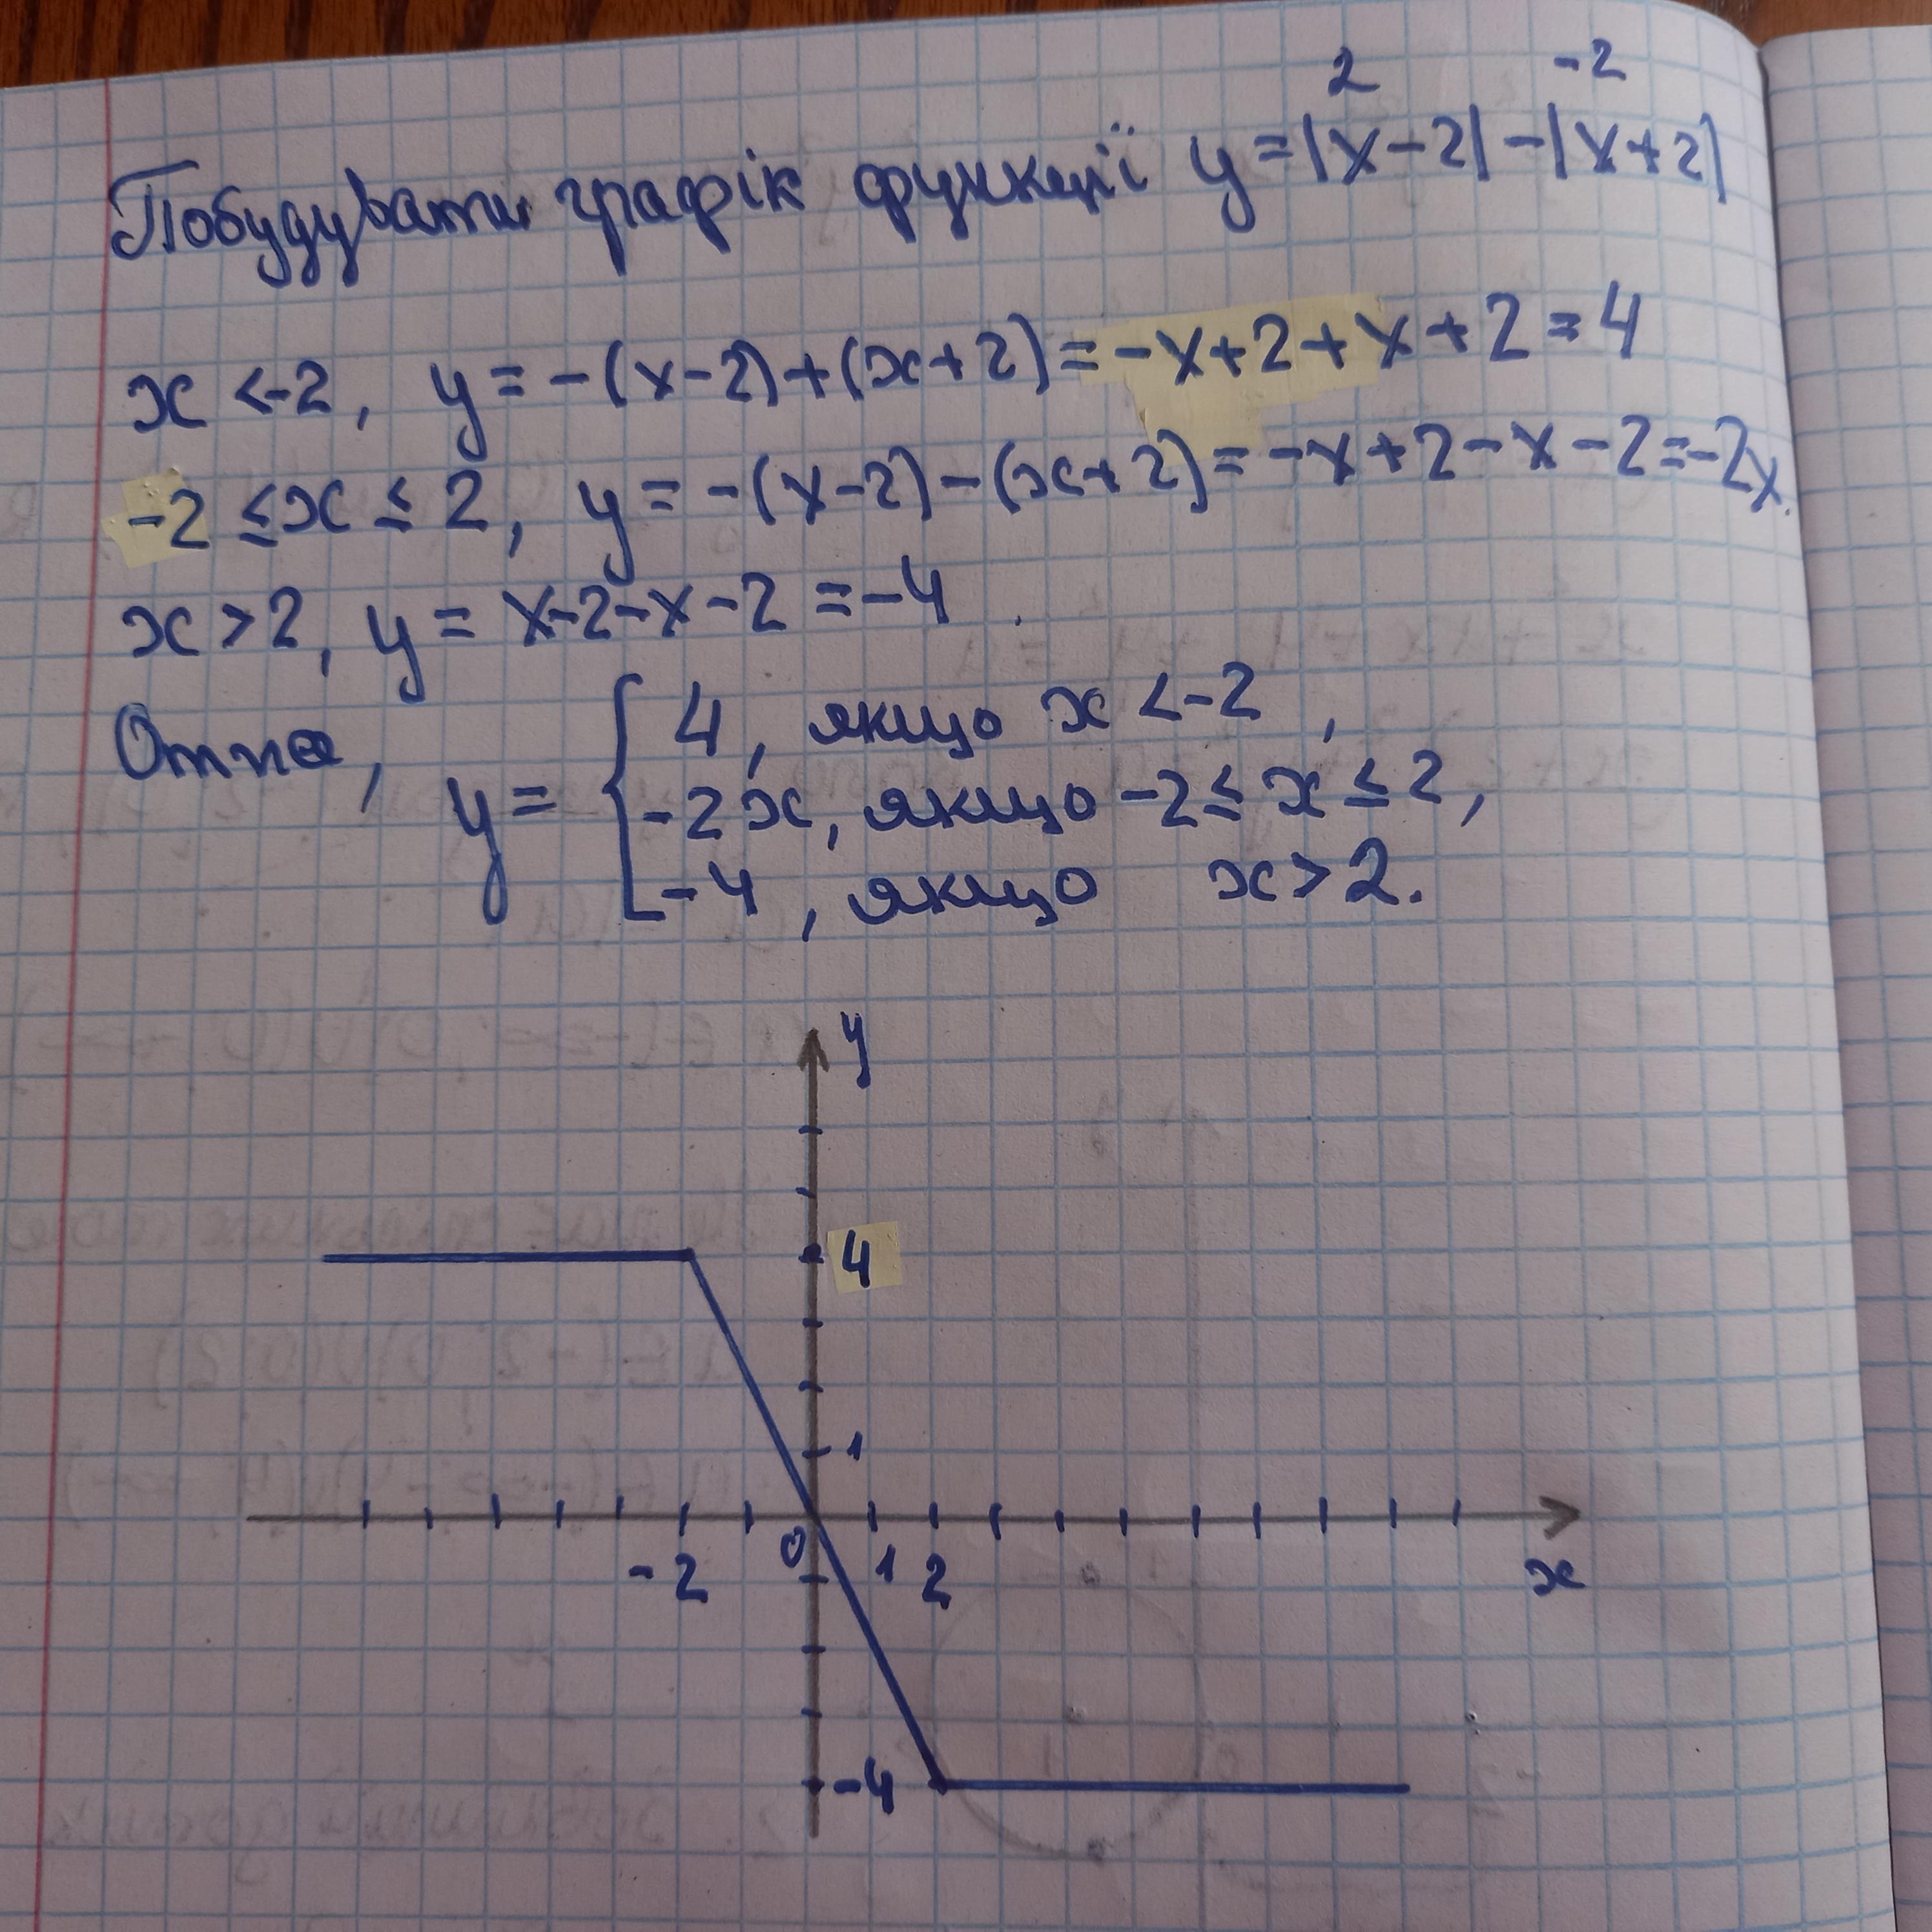 2 -2
Побудувати графік функції y=|x-2|-|x+2|
x<-2, y=-(x-2)+(x+2)=-x+2+x+2=4
-2≤x≤2, y=-(x-2)-(x+2)=-x+2-x-2=-2x.
x>2, y=x-2-x-2=-4.
Отже, y= { 4, якщо x<-2,
-2x, якщо -2≤x≤2,
-4, якщо x>2.
y
4
1
-2 0 1 2 x
-4